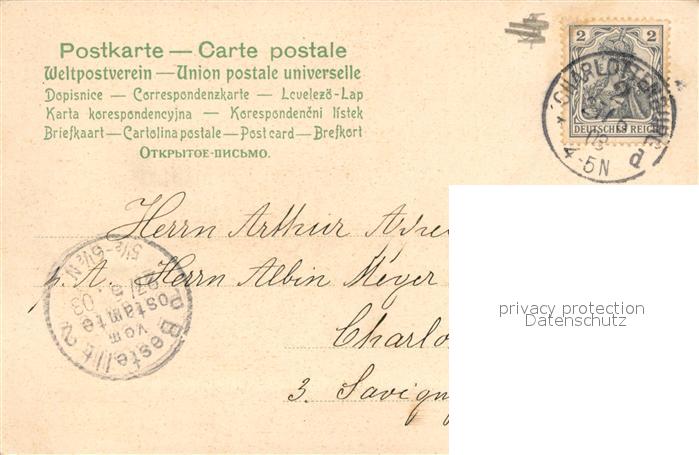 Postkarte — Carte postale
Weltpostverein — Union postale universelle
Dopisnice — Correspondenzkarte — Lcvelező-Lap
Karta korespondencyjna — Korespondenční lístek
Briefkaart — Cartolina postale — Post card — Brefkort
Открытое-письмо.
2 2
DEUTSCHES REICH
CHARLOTTENBURG
4-5N
d
Herrn Arthur
p. A. Herrn Albin Meyer
Charlo
3. Savigny
Bestellt
vom
Postamte
2
27/6. 03
5½-6½N
privacy protection
Datenschutz